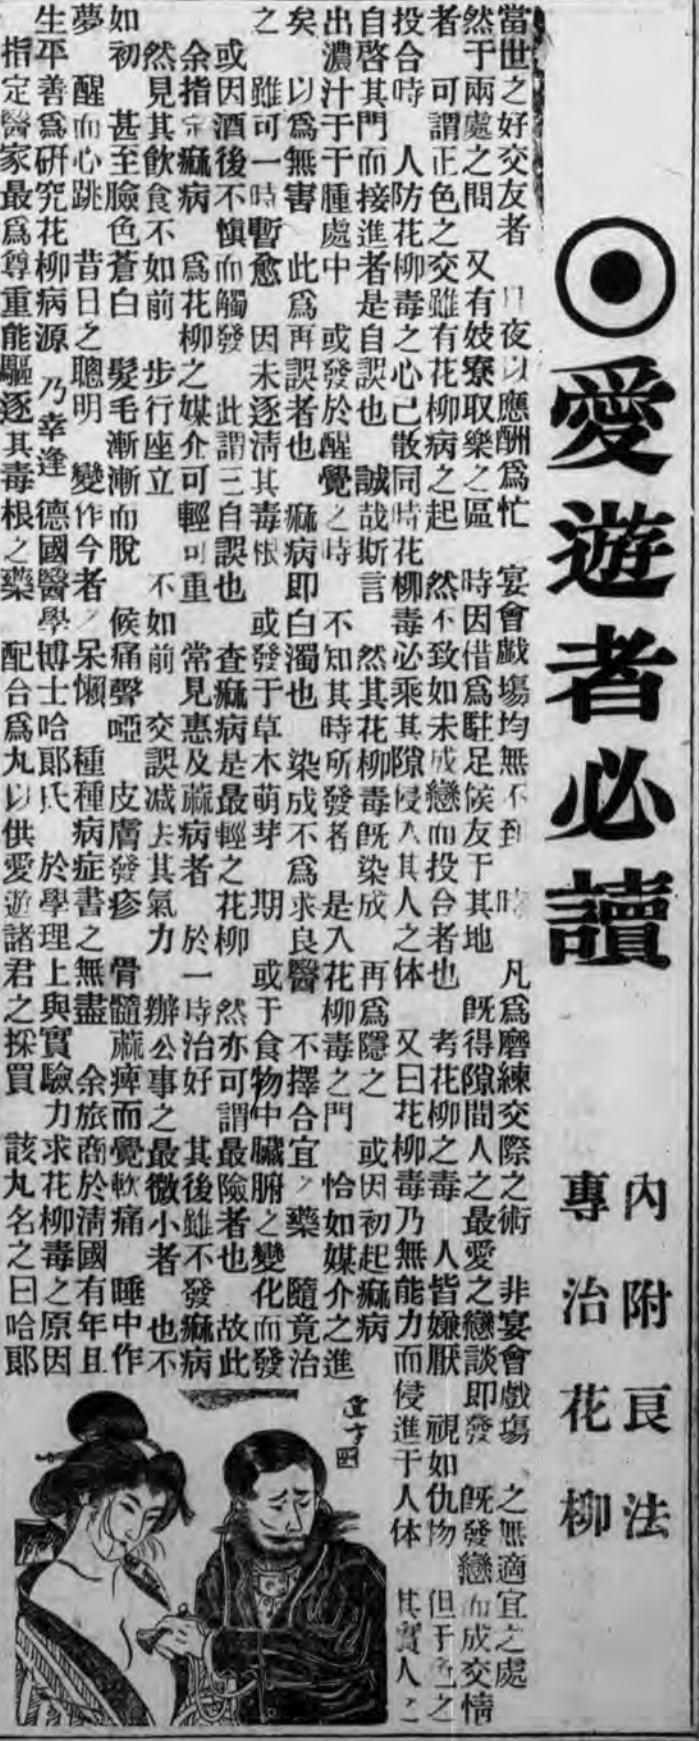 愛遊者必讀
內附良法
專治花柳
當世之好交友者 日夜以應酬爲忙 宴會戲塲均無不到 時 凡爲磨練交際之術 非宴會戲塲 之無適宜之處
然于兩處之間 又有妓寮取樂之區 時因借爲駐足候友于其地 旣得隙間人之最愛之戀談即發 旣發戀而成交情
者 可謂正色之交雖有花柳病之起 然不致如未成戀而投合者也 考花柳之毒 人皆嫌厭 視如仇物 但于色之
投合時 人防花柳毒之心已散同時花柳毒必乘其隙侵入其人之体 又曰花柳毒乃無能力而侵進于人体 其實人之
自啓其門而接進者是自誤也 誠哉斯言 然其花柳毒旣染成 再爲隱之 或因初起痳病
出濃汁于于腫處中 或發於醒覺之時 不知其時所發者 是入花柳毒之門 恰如媒介之進
矣 以爲無害 此爲再誤者也 痳病即白濁也 染成不爲求良醫 不擇合宜之藥 隨竟治
之 雖可一時暫愈 因未逐淸其毒根 或發于草木萌芽 期 或于食物中臟腑之變化而發
或因酒後不愼而觸發 此謂三自誤也 查痳病是最輕之花柳 然亦可謂最險者也 故此
余指定痳病 爲花柳之媒介可輕可重 常見惠及痳病者 於一時治好 其後雖不發痳病
然見其飮食不如前 步行座立 不如前 交誤减去其氣力 辦公事之最微小者 也不
如初 甚至臉色蒼白 髮毛漸漸而脫 候痛聲啞 皮膚發疹 骨髓痳痺而覺軟痛 睡中作
夢 醒而心跳 昔日之聰明 變作今者之呆懶 種種病症書之無盡 余旅商於淸國有年且
生平善爲硏究花柳病源 乃幸逢 德國醫學博士哈郞氏 於學理上與實驗力求花柳毒之原因
指定醫家最爲尊重能驅逐其毒根之藥 配合爲丸以供愛遊諸君之採買 該丸名之曰哈郞